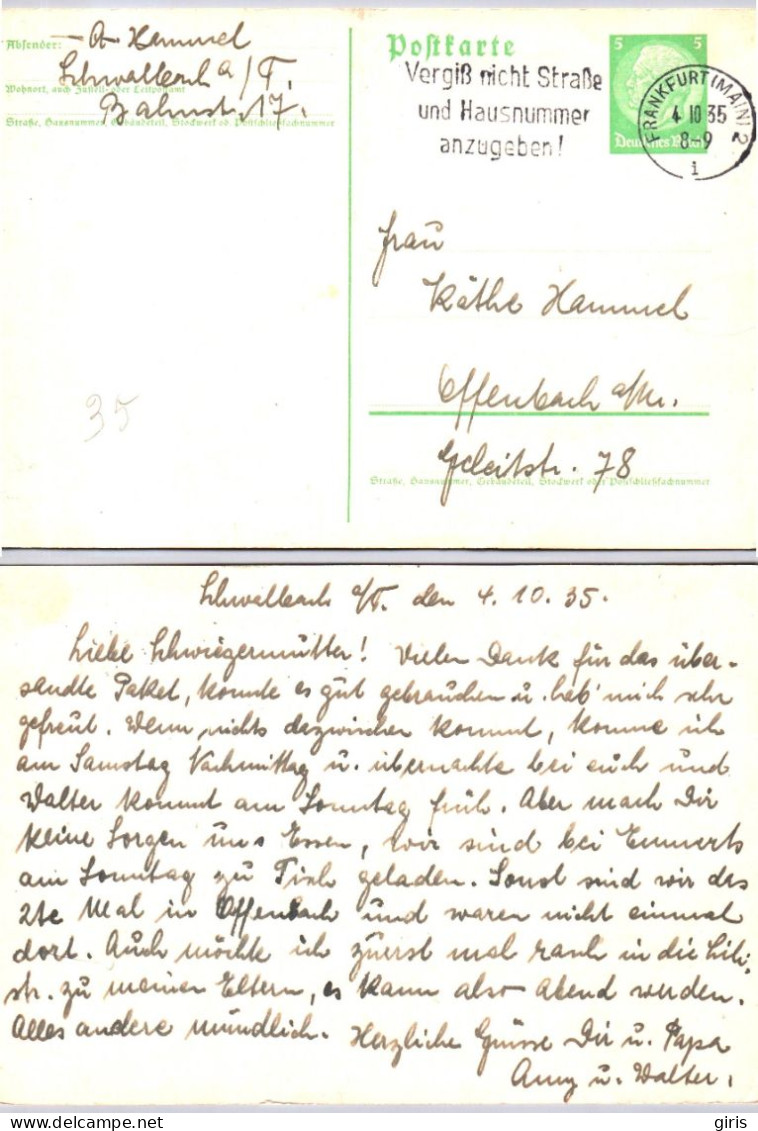 Absender: A. Hammel
Schwalbach a/T.
Wohnort, auch Zustell- oder Leitpostamt
Bahnstr. 17.
Straße, Hausnummer, Gebäudeteil, Stockwerk od. Postschließfachnummer
Postkarte
Vergiß nicht Straße
und Hausnummer
anzugeben!
5 5
Deutsches Reich
FRANKFURT (MAIN) 2
4 10 35
8-9
i
Frau
Käthe Hammel
Offenbach a/M.
Geleitstr. 78
Straße, Hausnummer, Gebäudeteil, Stockwerk oder Postschließfachnummer
35
Schwalbach a/T. den 4. 10. 35.
Liebe Schwiegermutter! Vielen Dank für das über-
sandte Paket, konnte es gut gebrauchen u. hab' mich sehr
gefreut. Wenn nichts dazwischen kommt, komme ich
am Samstag Nachmittag u. übernachte bei euch und
Walter kommt am Sonntag früh. Aber mach Dir
keine Sorgen ums Essen, wir sind bei Emmerts
am Sonntag zu Tisch geladen. Sonst sind wir das
2te Mal in Offenbach und waren nicht einmal
dort. Auch möchte ich zuerst mal rasch in die Lili-
str. zu meinen Eltern, es kann also Abend werden.
Alles andere mündlich. Herzliche Grüsse Dir u. Papa
Anny u. Walter.
delcampe.net
giris